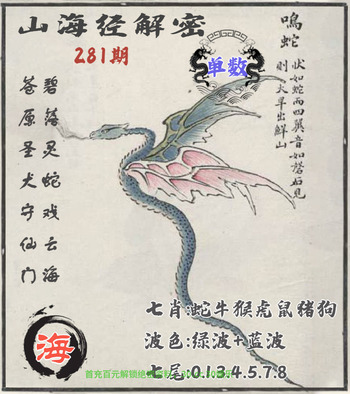 山海经解密
281期
单数
鳴蛇
状如蛇而四翼音如磬石見
則大旱出鮮山
碧落灵蛇戏云海
苍原圣犬守仙门
七肖:蛇牛猴虎鼠猪狗
波色:绿波+蓝波
七尾:0.1.3.4.5.7.8
海
首充百元解锁绝